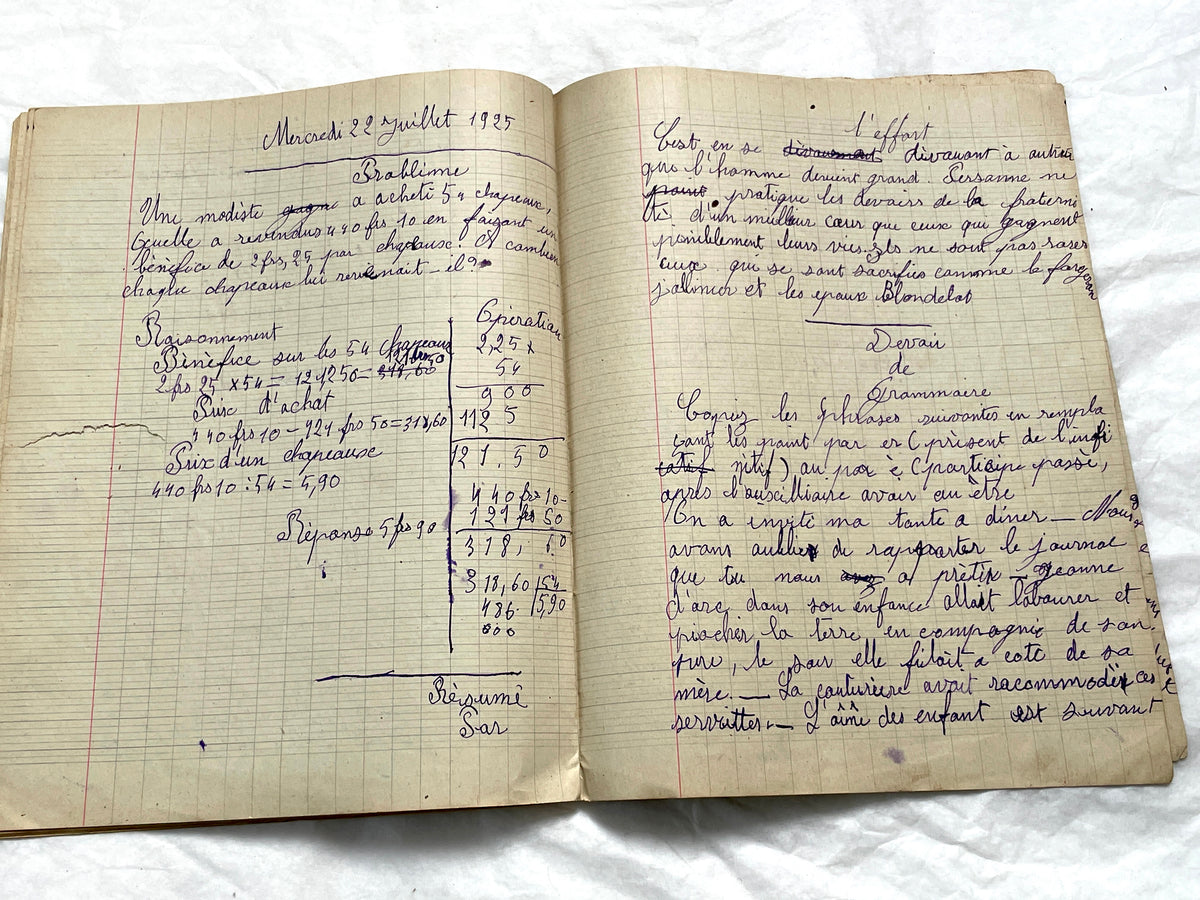 Mercredi 22 Juillet 1925
Problème
Une modiste gagne a acheté 54 chapeaux,
quelle a revindus 440 frs 10 en faisant un
bénéfice de 2 frs, 25 par chapeaux. A combien
chaque chapeaux lui revienait-il?
Raisonnement
Bénéfice sur les 54 chapeaux
2 frs 25 x 54 = 121,250 = 318,60 121 frs 50
Prix d'achat
440 frs 10 - 121 frs 50 = 318,60
Prix d'un chapeaux
440 frs 10 : 54 = 5,90
Réponse 5 frs 90
Opération
2,25 x
54
900
1125
121.50
440 frs 10-
121 frs 50
318, 60
318,60 54
486 5,90
000
Résumé
Sar
l'effort
C'est en se dèvouant à autrui
que l'homme devient grand. Persanne ne
pratique les devoirs de la fraterni
té d'un meilleur cœur que ceux qui gagnent
piniblement leurs vies. Ils ne sont pas rares
ceux qui se sont sacrifiés comme le forgeron
jalinier et les epoux Blondelot
Devoir
de
Grammaire
Copiez les phrases suivantes en rempla
çant les point par er (présent de l'infi
nitif) au par é (participe passé,
après l'auscilliaire avoir au être
On a invité ma tante a diner — Nous
avons oublier de rapporter le journal
que tu nous a prêtér — Jeanne
d'arc dans son enfance allait labourer et
piocher la terre en compagnie de son
père, le soir elle filait a coté de sa
mère. — La couturière avait racommodér ces
servittes. — L'aîné des enfant est souvant